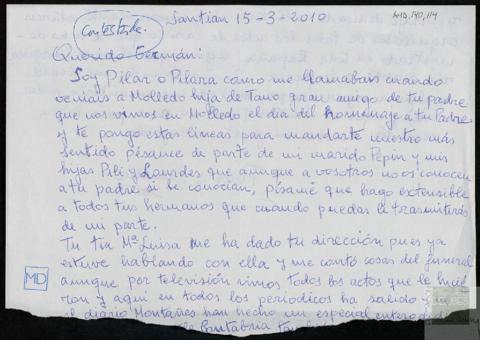 Contestada.
Santian 15-3-2010
AMD,140,114
Querido Germán:
Soy Pilar o Pilara como me llamabais cuando
veniais a Molledo hija de Tano gran amigo de tu padre
que nos vimos en Molledo el dia del homenaje a tu Padre
y te pongo estas lineas para mandarte nuestro más
sentido pésame de parte de mi marido Pepin y mis
hijas Pili y Lourdes que aunque a vosotros no os conocen
a tu padre si le conocian, pésame que hago extensible
a todos tus hermanos que cuando puedas le trasmitirás
de mi parte.
Tu tia Mª Luisa me ha dado tu dirección pues ya
estuve hablando con ella y me contó cosas del funeral
aunque por televisión vimos todos los actos que le hicie
ron y aqui en todos los periodicos ha salido
el diario Montañes han hecho un especial entero
Cantabria
MD